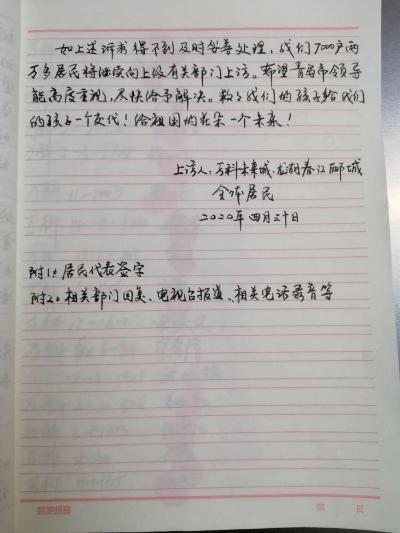 如上述诉求得不到及时妥善处理，我们7000户两
万多居民将继续向上级有关部门上访。希望青岛市领导
能高度重视，尽快给予解决。救救我们的孩子给我们
的孩子一个交代！给祖国的花朵一个未来！
上访人：万科未来城、龙湖春江郦城
全体居民
2020年四月三十日
附1：居民代表签字
附2：相关部门回复、电视台报道、相关电话录音等
第 页